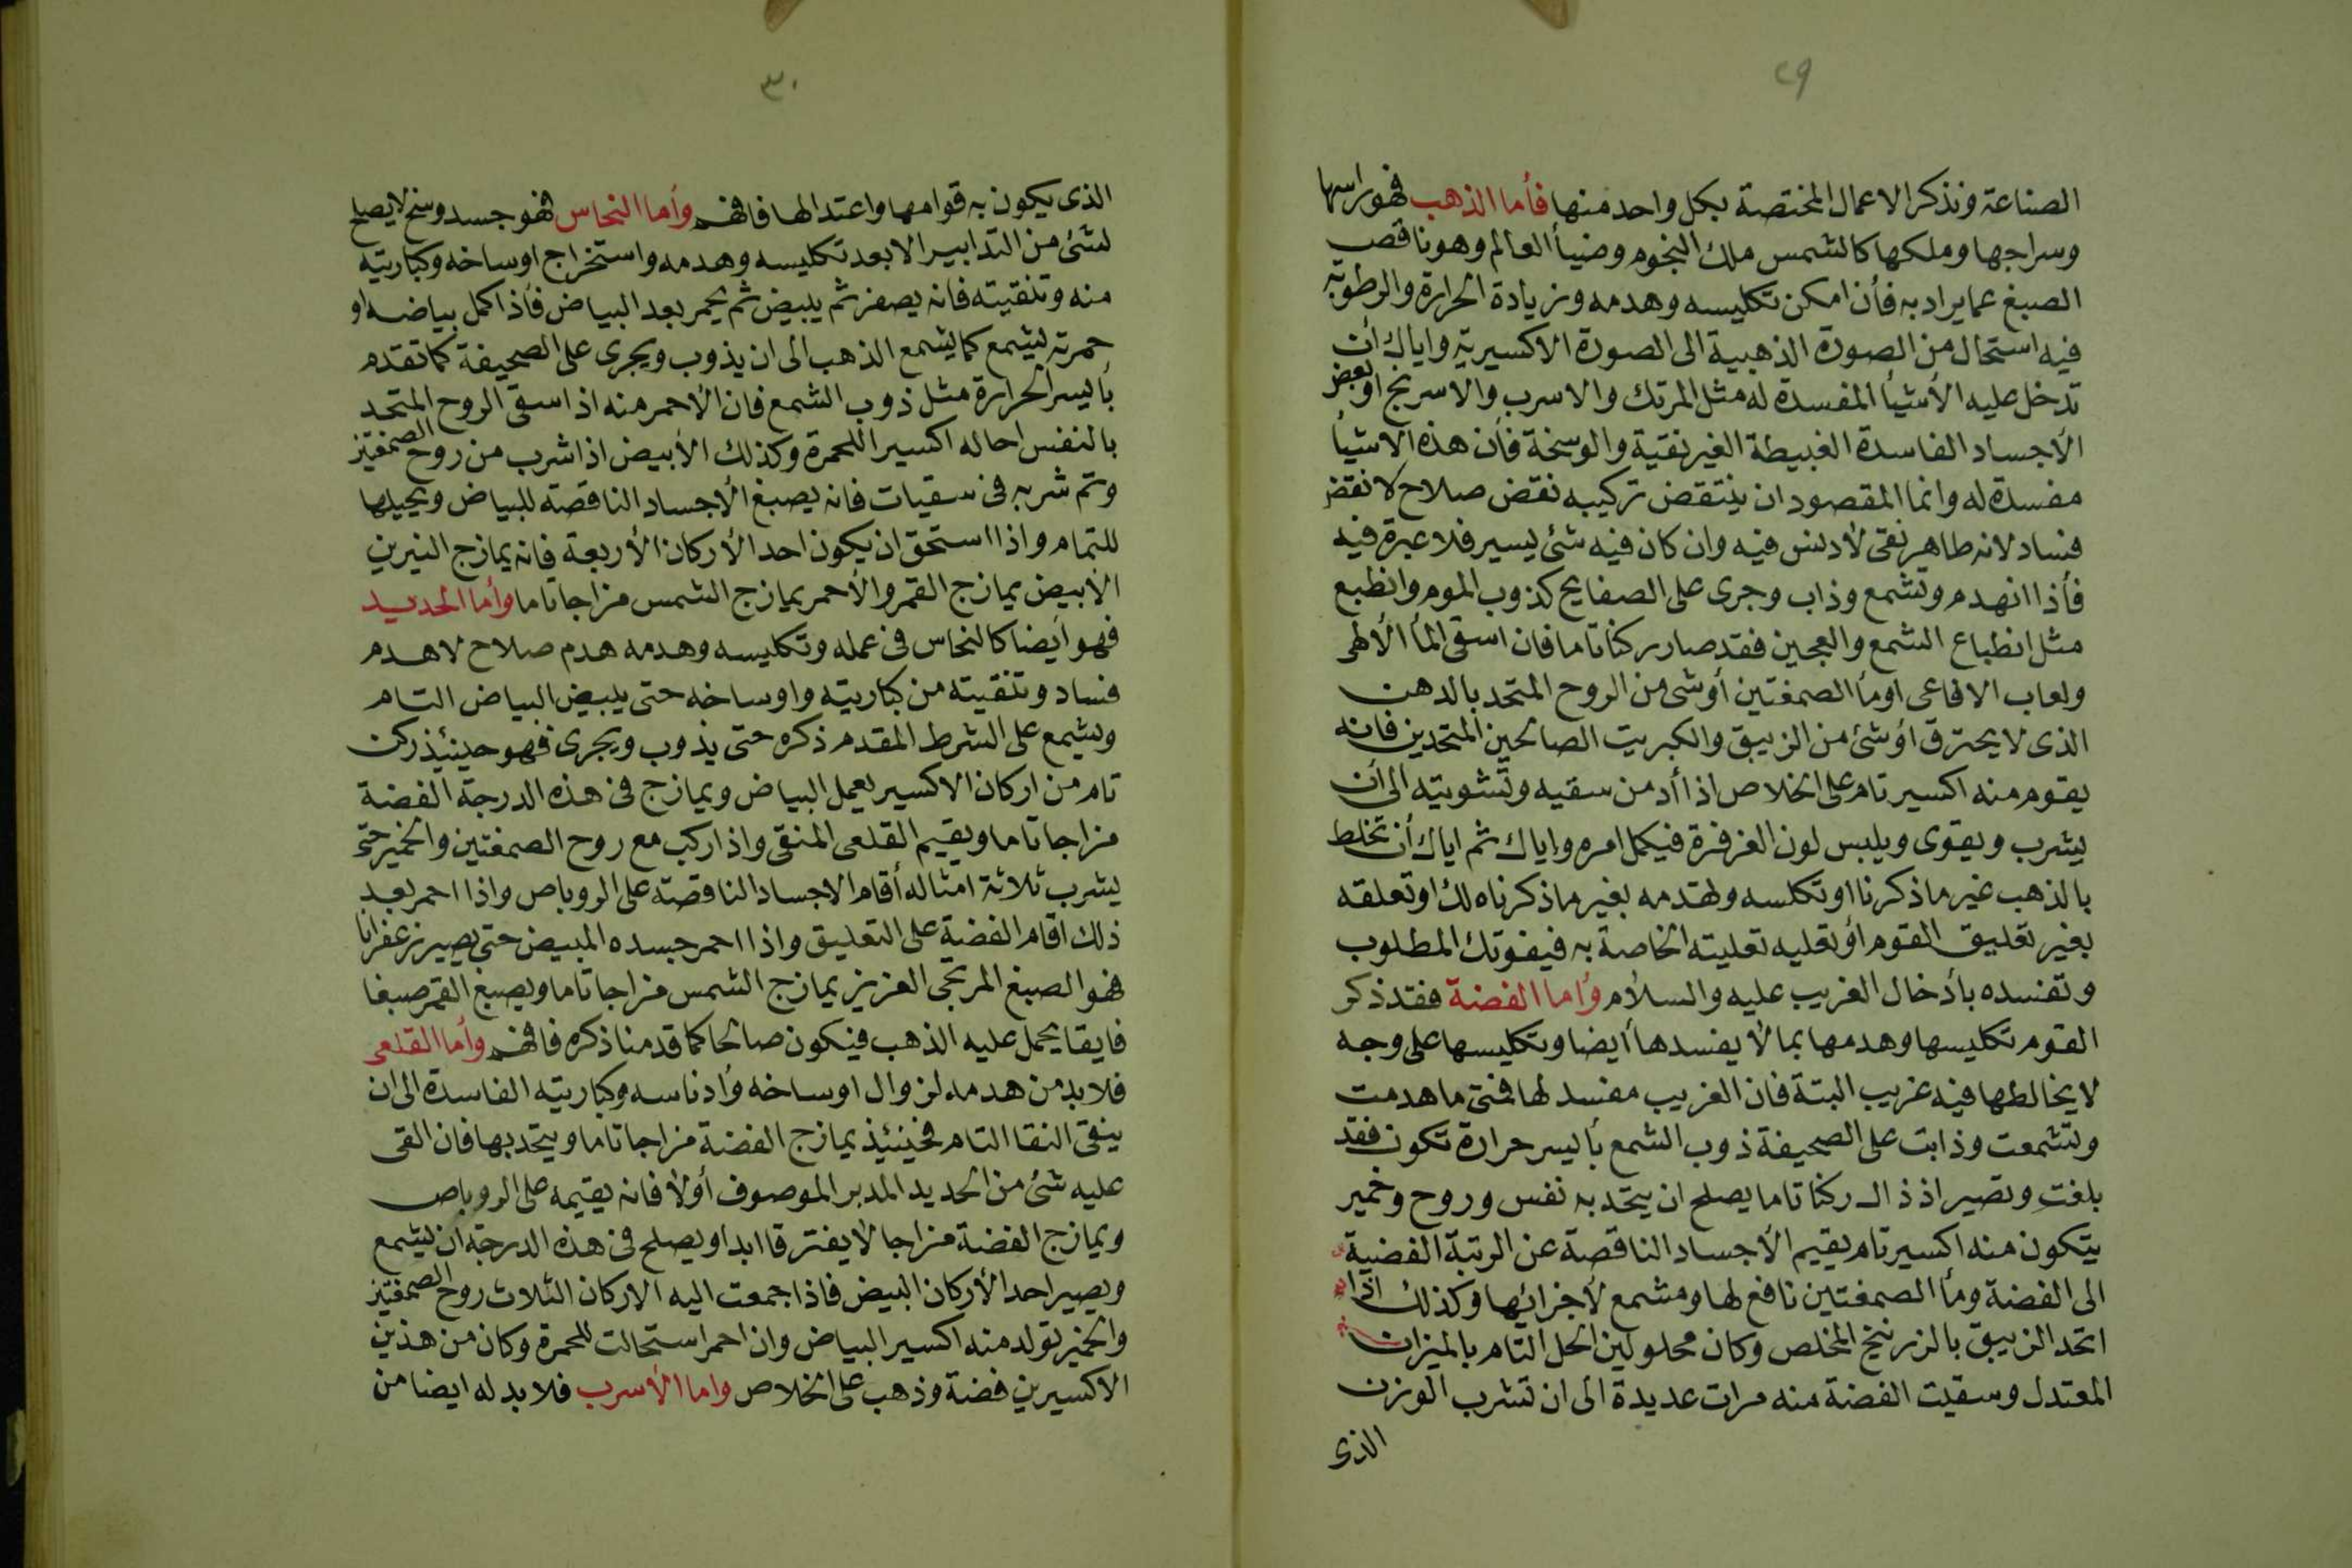 ٢٩
الصناعة ونذكر الاعمال المختصة بكل واحد منها فأما الذهب فهو راسها
وسراجها وملكها كالشمس ملك النجوم وضيأ العالم وهو ناقص
الصبغ عما يراد به فأن امكن تكليسه وهدمه وزيادة الحرارة والرطوبة
فيه استحال من الصورة الذهبية الى الصورة الاكسيرية واياك أن
تدخل عليه الأشيأ المفسدة له مثل المرتك والاسرب والاسرنج او بعض
الأجساد الفاسدة الغبيطة الغير نقية والوسخة فأن هذه الاشيأ
مفسدة له وانما المقصود ان ينتقض تركيبه نقض صلاح لا نقض
فساد لانه طاهر نقى لادنس فيه وان كان فيه شئ يسير فلا عبرة فيه
فأذا انهدم وتشمع وذاب وجرى على الصفايح كذوب الموم وانطبع
مثل انطباع الشمع والعجين فقد صار ركنا تاما فان اسقى المأ الألهى
ولعاب الافاعى اومأ الصمغتين أوشى من الروح المتحد بالدهن
الذى لا يحترق أوشئ من الزيبق والكبريت الصالحين المتحدين فانه
يقوم منه اكسير تام على الخلاص اذا أدمن سقيه وتشويته الى أن
يشرب ويقوى ويلبس لون الفرفرة فيكمل امره واياك ثم اياك أن تخلط
بالذهب غير ما ذكرنا او تكلسه وتهدمه بغير ما ذكرناه لك او تعلقه
بغير تعليق القوم أو تعليه تعليته الخاصة به فيفوتك المطلوب
وتفسده بأدخال الغريب عليه والسلام وأما الفضة فقد ذكر
القوم تكليسها وهدمها بما لا يفسدها أيضا وتكليسها على وجه
لا يخالطها فيه غريب البتة فان الغريب مفسد لها فمتى ما هدمت
وتشمعت وذابت على الصحيفة ذوب الشمع بأيسر حرارة تكون فقد
بلغت وتصير اذ ذاك ركنا تاما يصلح ان يتحد به نفس وروح وخمير
يتكون منه اكسير تام يقيم الأجساد الناقصة عن الرتبة الفضية
الى الفضة ومأ الصمغتين نافع لها ومشمع لأجزائها وكذلك اذا
اتحد الزيبق بالزرنيخ المخلص وكان محلولين الحل التام بالميزان
المعتدل وسقيت الفضة منه مرات عديدة الى ان تشرب الوزن
الذى
٣٠
الذى يكون به قوامها واعتدالها فافهم وأما النحاس فهو جسد وسخ لا يصلح
لشئ من التدابير الا بعد تكليسه وهدمه واستخراج اوساخه وكباريته
منه وتنقيته فانه يصفر ثم يبيض ثم يحمر بعد البياض فأذا كمل بياضه او
حمرته ليشمع كما يشمع الذهب الى ان يذوب ويجرى على الصحيفة كما تقدم
بأيسر الحرارة مثل ذوب الشمع فان الأحمر منه اذا سقى الروح المتحد
بالنفس احاله اكسيرا للحمرة وكذلك الأبيض اذا شرب من روح الصمغتين
وتم شربه فى سقيات فانه يصبغ الأجساد الناقصة للبياض ويحيلها
للتمام واذا استحق ان يكون احد الأركان الأربعة فانه يمازج النيرين
الأبيض يمازج القمر والأحمر يمازج الشمس مزاجا تاما وأما الحديد
فهو أيضا كالنحاس فى عمله وتكليسه وهدمه هدم صلاح لا هدم
فساد وتنقيته من كباريته واوساخه حتى يبيض البياض التام
ويشمع على الشرط المقدم ذكره حتى يذوب ويجرى فهو حينئذ ركن
تام من اركان الاكسير بعمل البياض ويمازج فى هذه الدرجة الفضة
مزاجا تاما ويقيم القلعى المنقى واذا ركب مع روح الصمغتين والخمير حتى
يشرب ثلاثة امثاله أقام الاجساد الناقصة على الروباص واذا احمر بعد
ذلك اقام الفضة على التعليق واذا احمر جسده المبيض حتى يصير زعفرانا
فهو الصبغ المريخى العزيز يمازج الشمس مزاجا تاما ويصبغ القمر صبغا
فايقا يحمل عليه الذهب فيكون صالحا كما قدمنا ذكره فافهم وأما القلعى
فلا بد من هدمه لزوال اوساخه وأدناسه وكباريته الفاسدة الى ان
ينقى النقا التام فحينئذ يمازج الفضة مزاجا تاما ويتحد بها فان القى
عليه شئ من الحديد المدبر الموصوف أولا فانه يقيمه على الروباص
ويمازج الفضة مزاجا لا يفترقا ابدا ويصلح فى هذه الدرجة ان يشمع
ويصير احد الأركان البيض فاذا جمعت اليه الاركان الثلاث روح الصمغتين
والخمير تولد منه اكسير البياض وان احمر استحالت للحمرة وكان من هذين
الاكسيرين فضة وذهب على الخلاص واما الأسرب فلا بد له ايضا من